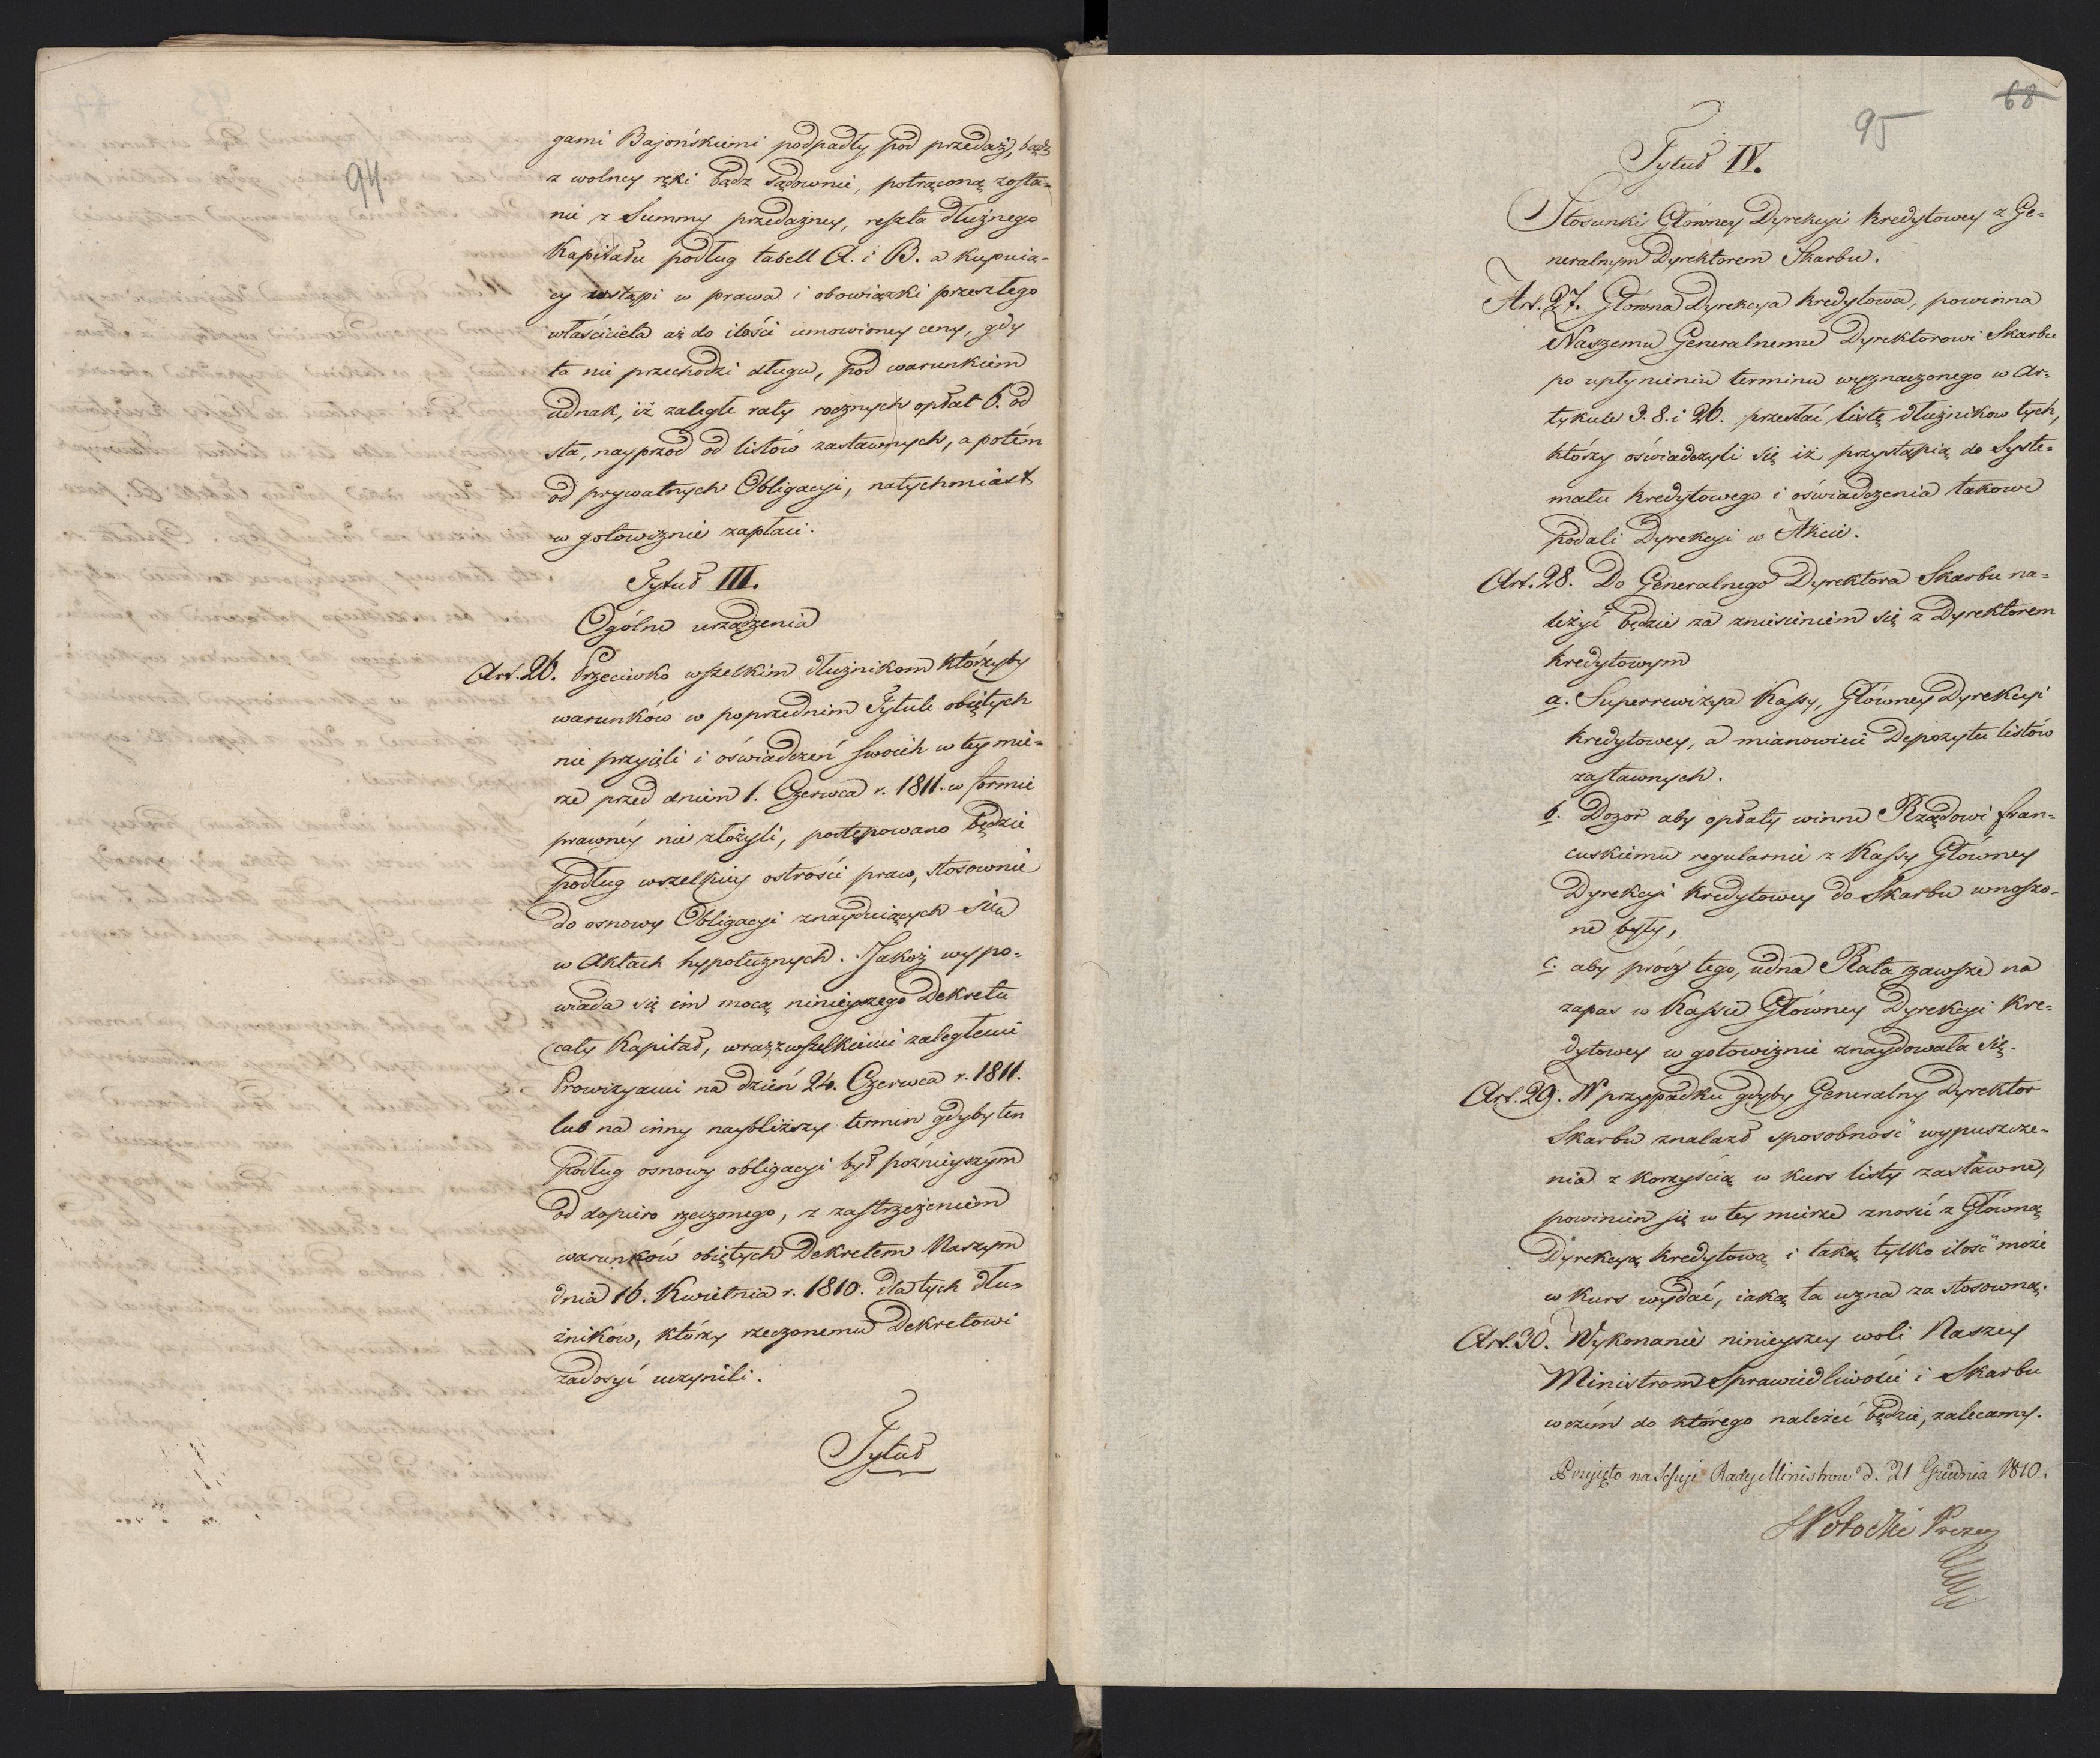 94
gami Bajońskiemi podpadły pod przedaż, bądź
z wolney ręki bądz sądownie, potrąconą zosta-
nie z Summy przedażney, reszta dłużnego
Kapitału podług tabell A. i B. a kupuią-
cy wstąpi w prawa i obowiązki przeszłego
właściciela aż do ilości umowioney ceny, gdy
ta nie przechodzi długu, pod warunkiem
iednak, iż zaległe raty rocznych opłat 6. od
sta, nayprzod od listów zastawnych, a potém
od prywatnych Obligacyi, natychmiast
w gotowiznie zapłaci.
Tytuł III.
Ogólne urządzenia
Art. 26. Przeciwko wszelkim dłużnikom którzyby
warunków w poprzednim Tytule obiętych
nie przyięli i oświadczeń swoich w tey mie-
rze przed dniem 1. Czerwca r. 1811. w formie
prawnéy nie złożyli, postępowano będzie
podług wszelkiey ostrości praw, stosownie
do osnowy Obligacyi znayduiących się
w Aktach hypotecznych. Jakoż wypo-
wiada się im mocą ninieyszego Dekretu
cały Kapitał, wraz z wszelkiemi zaległemi
Prowizyami na dzień 24. Czerwca r. 1811.
lub na inny naybliższy termin gdyby ten
podług osnowy obligacyi był poznieyszym
od dopiero rzeczonego, z zastrzeżeniem
warunków obiętych Dekretem Naszym
dnia 16. Kwietnia r. 1810. dla tych dłu-
żników, którzy rzeczonemu Dekretowi
zadosyć uczynili.
Tytuł
68
95
Tytuł IV.
Stosunki Główney Dyrekcyi kredytowey z Ge-
neralnym Dyrektorem Skarbu.
Art. 27. Główna Dyrekcya kredytowa, powinna
Naszemu Generalnemu Dyrektorowi Skarbu
po upłynieniu terminu wyznaczonego w Ar-
tykule 3. 8. i 26. przesłać listę dłużnikow tych,
którzy oświadczyli się iż przystąpią do Syste-
matu kredytowego i oświadczenia takowe
podali Dyrekcyi w Akcie.
Art. 28. Do Generalnego Dyrektora Skarbu na-
leżyć będzie za zniesieniem się z Dyrektorem
kredytowym
a. Superrewizya Kassy, Główney Dyrekcyi
kredytowey, a mianowicie Depozytu listów
zastawnych.
b. Dozor aby opłaty winne Rządowi fran-
cuskiemu regularnie z Kassy Główney
Dyrekcyi kredytowey do Skarbu wnoszo-
ne były,
c. aby prócz tego, iedna Rata zawsze na
zapas w Kassie Główney Dyrekcyi kre-
dytowey w gotowiznie znaydowała się.
Art. 29. W przypadku gdyby Generalny Dyrektor
Skarbu znalazł sposobność wypuszcze-
nia z korzyścią w kurs listy zastawne,
powinien się w tey mierze znosić z Główną
Dyrekcyą kredytową i taką tylko ilość może
w kurs wydać, iaką ta uzna za stosowną.
Art. 30. Wykonanie ninieyszey woli Naszey
Ministrom Sprawiedliwości i Skarbu
w czém do którego należeć będzie, zalecamy.
Przyjęto na Sessyi Rady Ministrow d. 21 Grudnia 1810.
S Potocki Prezes